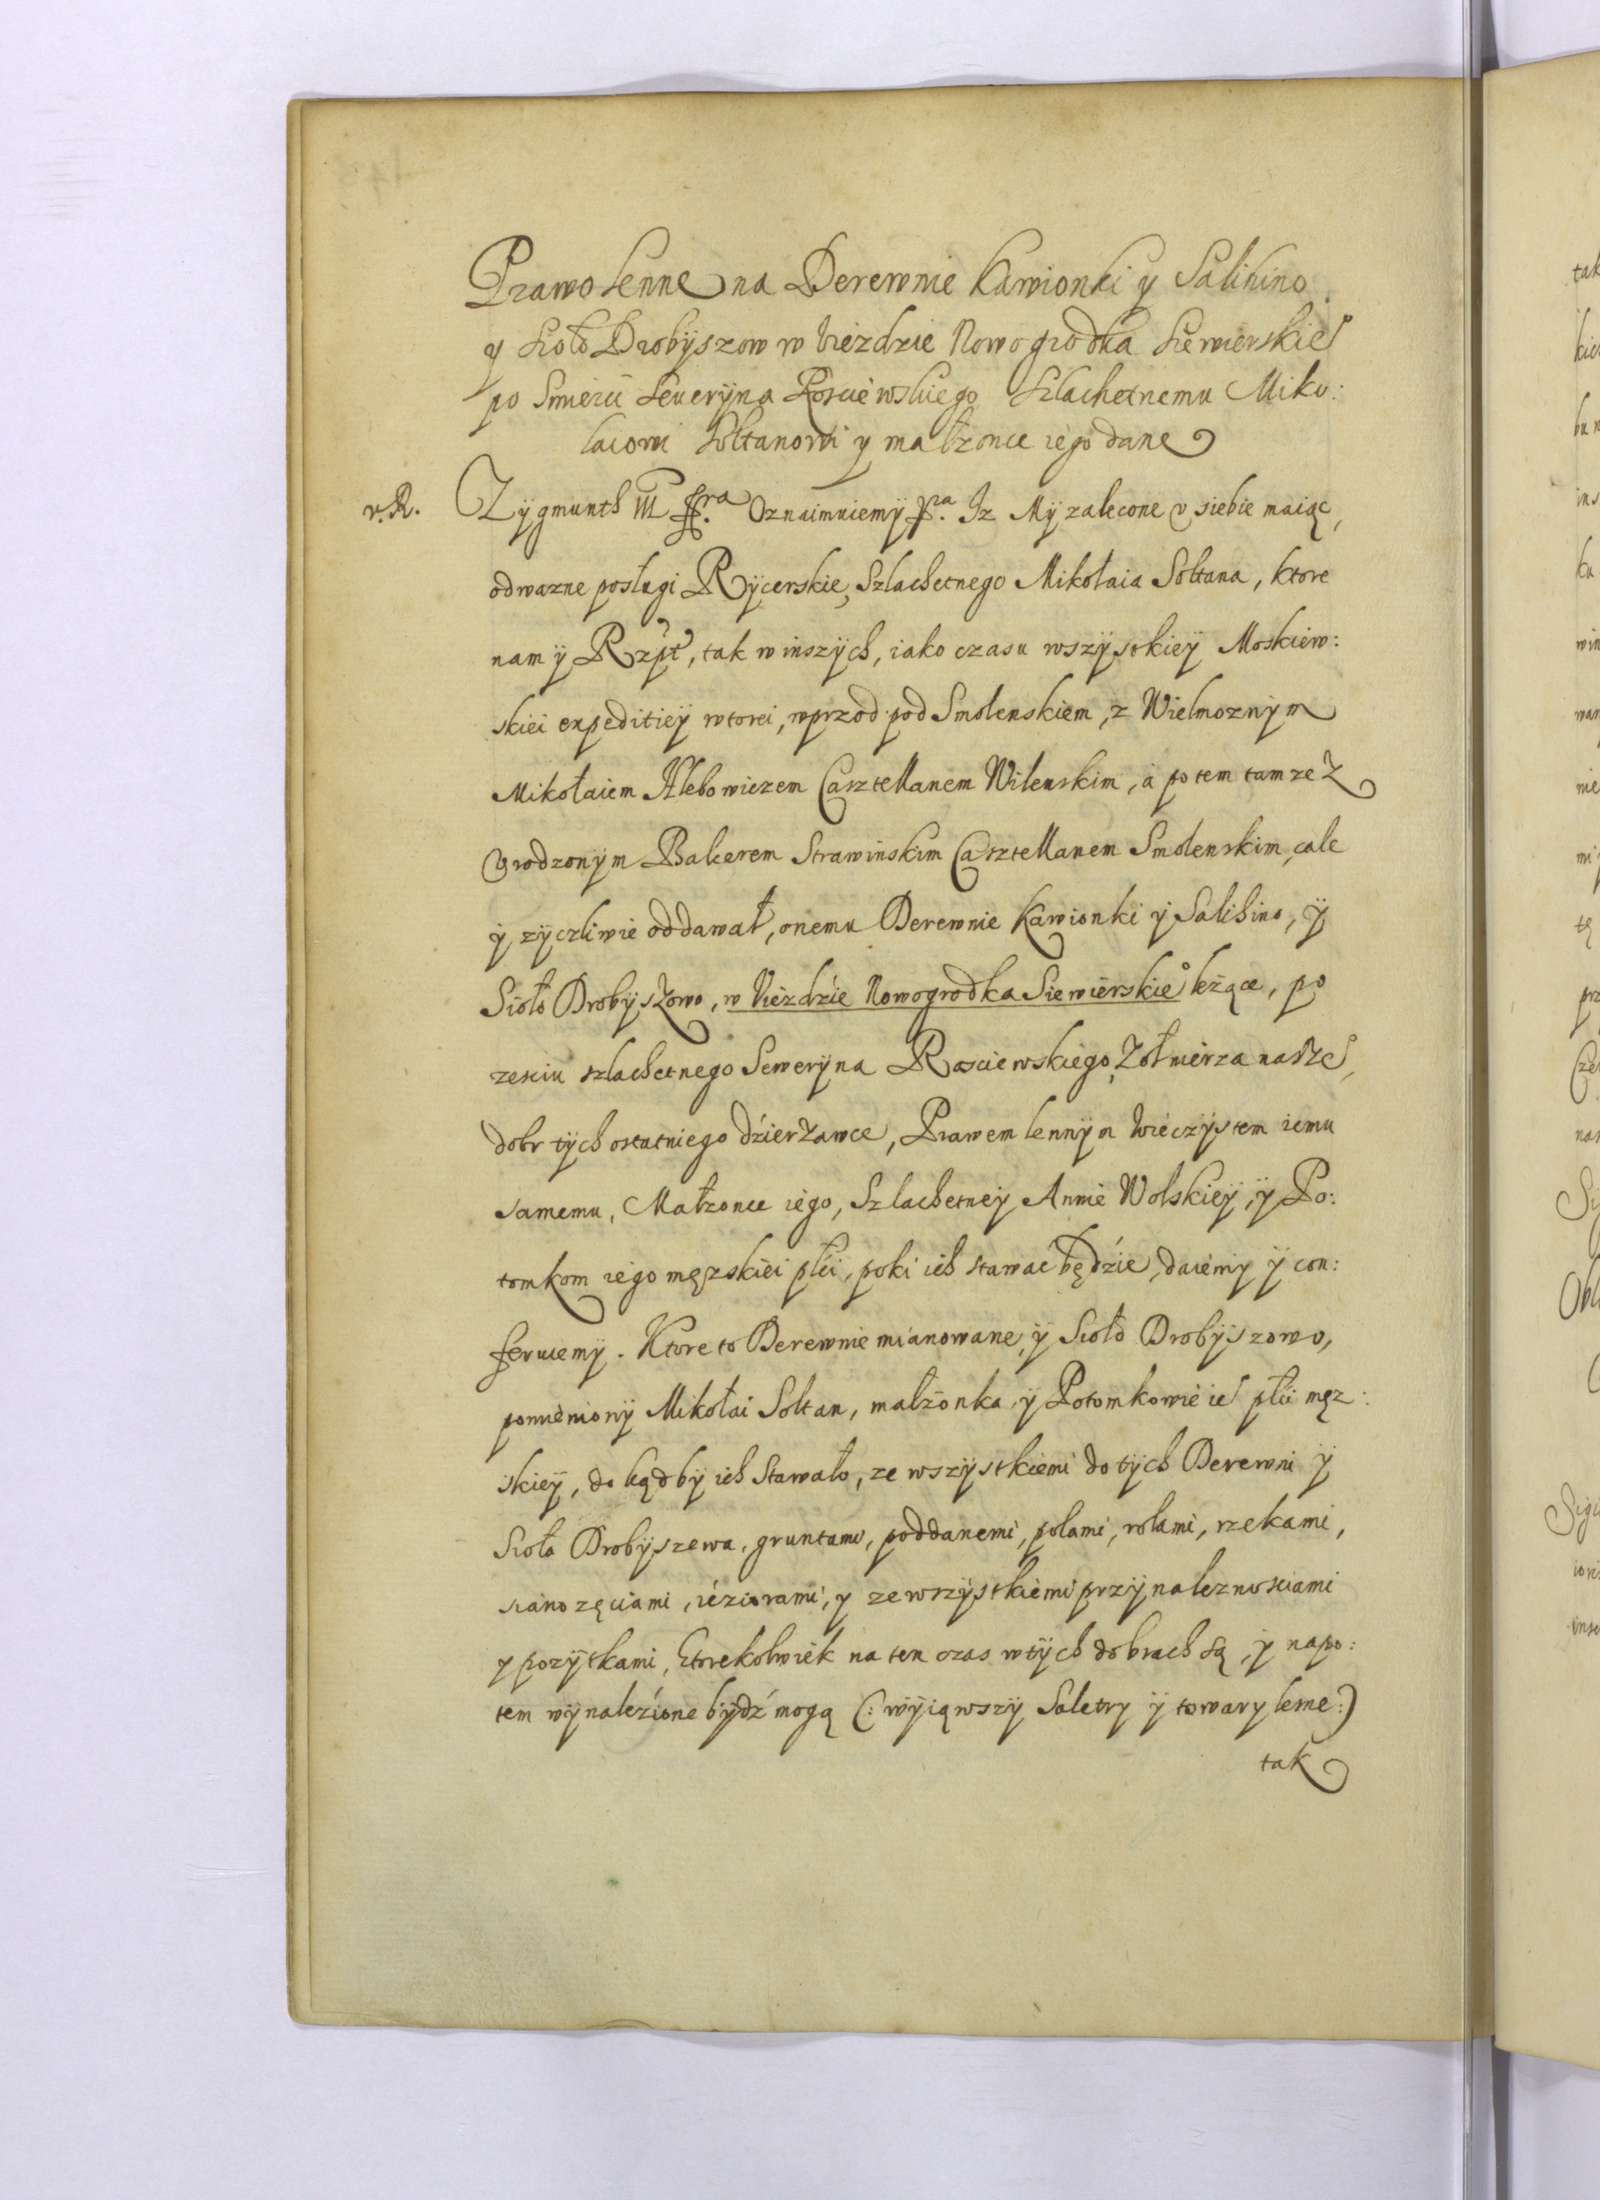 Prawo Lenne na Derewnie Kawionki y Salihino
y Sioło Drobyszow w Uiezdzie Nowogrodka Siewierskie
po Smierci Seueryna Rosciewskiego Szlachetnemu Miko:
laiowi Sołtanowi y małzonce iego dane
v. R. Zygmunth III Oznaimuiemy Iz My zalecone v siebie maiąc,
odwazne posługi Rycerskie, Szlachetnego Mikołaia Sołtana, ktore
nam ÿ Rzpt, tak w inszÿch, iako czasu wszÿstkieÿ Moskiew:
skiei expeditieÿ wtorei, wprzod pod Smolenskiem, z Wielmoznÿm
Mikołaiem Hlebowiczem Casztellanem Wilenskim, á potem tamze z
Vrodzonÿm Balcerem Strawinskim Casztellanem Smolenskim, cale
ÿ zÿczliwie oddawał, onemu Derewnie Kawionki ÿ Salihino, ÿ
Sioło Drobÿszowo, w Uiezdzie Nowogrodka Siewierskie° leżące, po
zesciu szlachetnego Sewerÿna Rosciewskiego, Zołnierza nasze,
dobr tÿch ostatniego dźierzawce, Prawem lennÿm wieczÿstem iemu
samemu, Małzonce iego, Szlachetneÿ Annie Wolskieÿ, ÿ Po:
tomkom iego męzskiei płci, poki ich stawać będźie, daiemÿ ÿ con:
feruiemÿ. Ktore to Derewnie mianowane, ÿ Sioło Drobÿszowo,
pomienionÿ Mikołai Soltan, małżonka, ÿ Potomkowie ie płci męz:
skieÿ, dokądbÿ ich Stawało, ze wszÿstkiemi do tÿch Derewni ÿ
Sioła Drobÿszewa, gruntami, poddanemi, polami, rolami, rzekami,
sianozęciami, ieziorami, y ze wszÿstkiemi przÿnaleznosciami
y pozÿtkami, ktorekolwiek na ten czas w tÿch dobrach są, ÿ napo:
tem wÿnaleźione bÿdź mogą (: wÿiąwszÿ Saletry ÿ towary lesne :)
tak